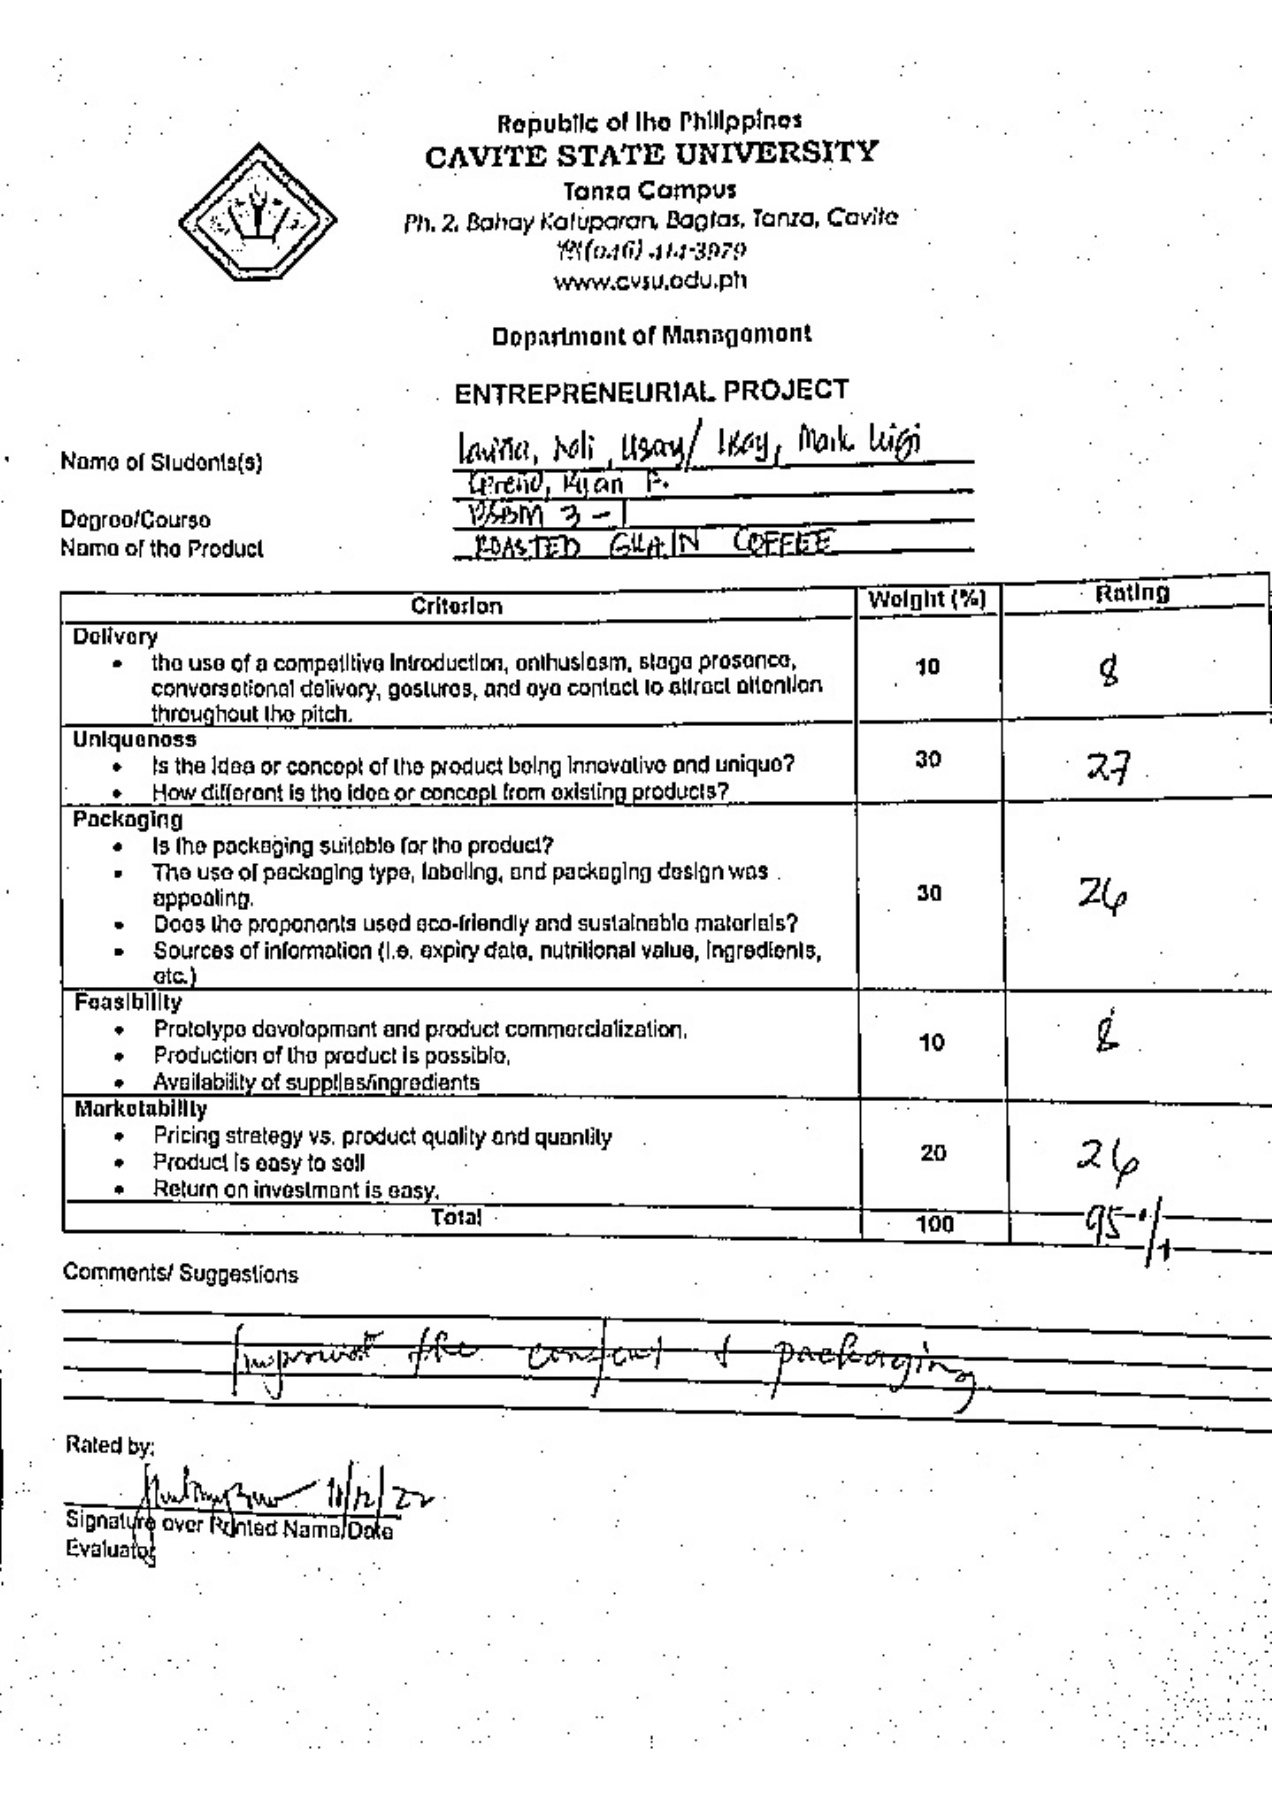 Republic of the Philippines
CAVITE STATE UNIVERSITY
Tanza Campus
Ph. 2, Bahay Katuparan, Bagtas, Tanza, Cavite
☏(046) 414-3979
www.cvsu.edu.ph
Department of Management
ENTREPRENEURIAL PROJECT
Name of Students(s) Noli, / Mark Luigi
Ryan P.
Degree/Course BSBM 3-1
Name of the Product ROASTED GRAIN COFFEE
Criterion Weight (%) Rating
Delivery
• the use of a competitive introduction, enthusiasm, stage presence, 10 8
conversational delivery, gestures, and eye contact to attract attention
throughout the pitch.
Uniqueness
• Is the idea or concept of the product being innovative and unique? 30 27
• How different is the idea or concept from existing products?
Packaging
• Is the packaging suitable for the product?
• The use of packaging type, labeling, and packaging design was
appealing. 30 26
• Does the proponents used eco-friendly and sustainable materials?
• Sources of information (i.e. expiry date, nutritional value, ingredients,
etc.)
Feasibility
• Prototype development and product commercialization,
• Production of the product is possible, 10 8
• Availability of supplies/ingredients
Marketability
• Pricing strategy vs. product quality and quantity
• Product is easy to sell 20 26
• Return on investment is easy.
Total 100 95
Comments/ Suggestions
the & packaging
Rated by:
11/12/22
Signature over Printed Name/Date
Evaluator